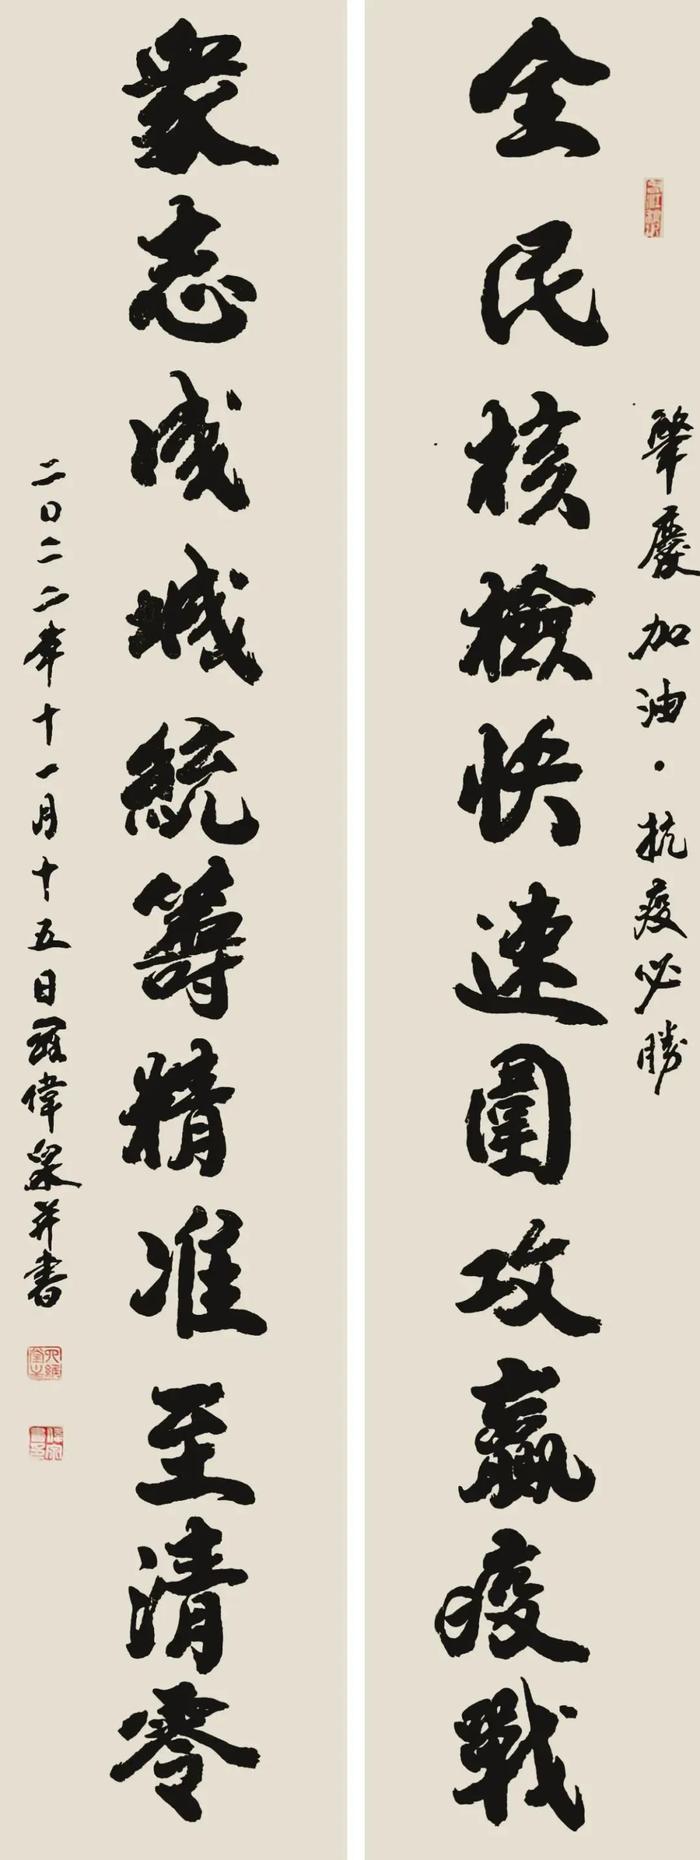 肇慶加油·抗疫必勝
全民核檢快速圍攻贏疫戰
衆志成城統籌精准至清零
二〇二二年十一月十五日羅偉泉并書